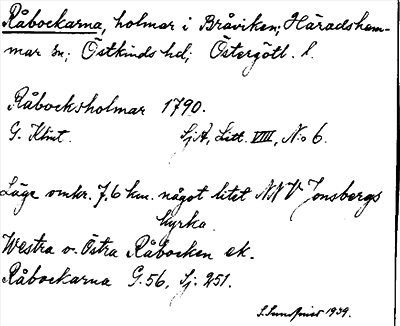 Råbockarna, holmar i Bråviken; Häradsham-
mar sn; Östkinds hd; Östergötl. l.
Råbocksholmar 1790.
G. Klint. SjA, Litt. VIII, No 6.
Läge omkr. 7,6 km. något litet NNV Jonsbergs
kyrka.
Westra o. Östra Råbocken ek.
Råbockarna G.56, Sj. 251.
1939.